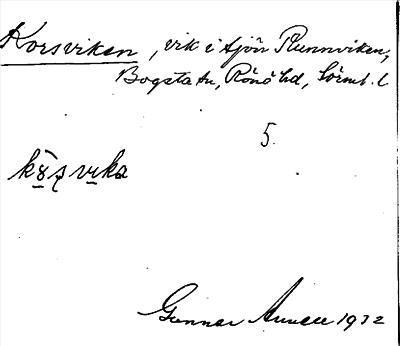 Korsviken, vik i sjön Runnviken,
Bogsta sn, Rönö hd, Sörml. l
5.
kɷ̀ṣvika
Gunnar Annell 1932